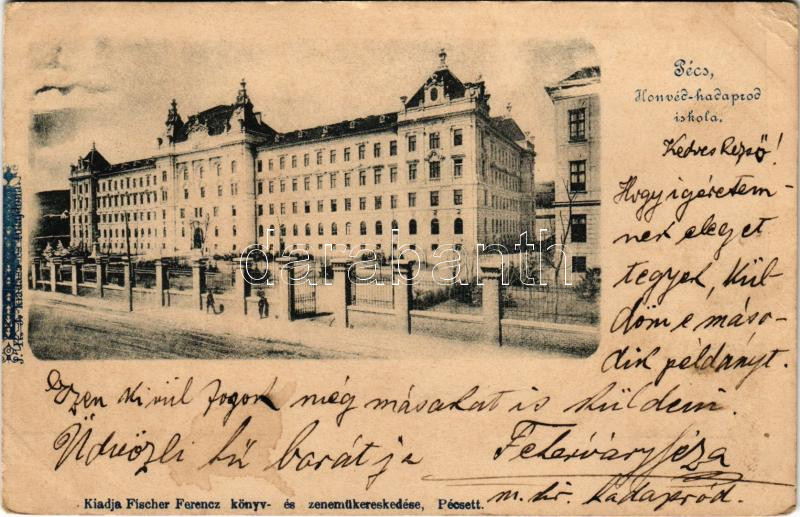 Pécs,
Honvéd-hadapród
iskola.
Kedves Rezső!
Hogy igéretem-
nek eleget
tegyek, kül-
döm e máso-
dik példányt.
Ezen kivül fogok még másokat is küldeni.
Üdvözli hű barátja Fehérváry Géza
m. kir. hadapród.
darabanth.com
Kiadja Fischer Ferencz könyv- és zeneműkereskedése, Pécsett.